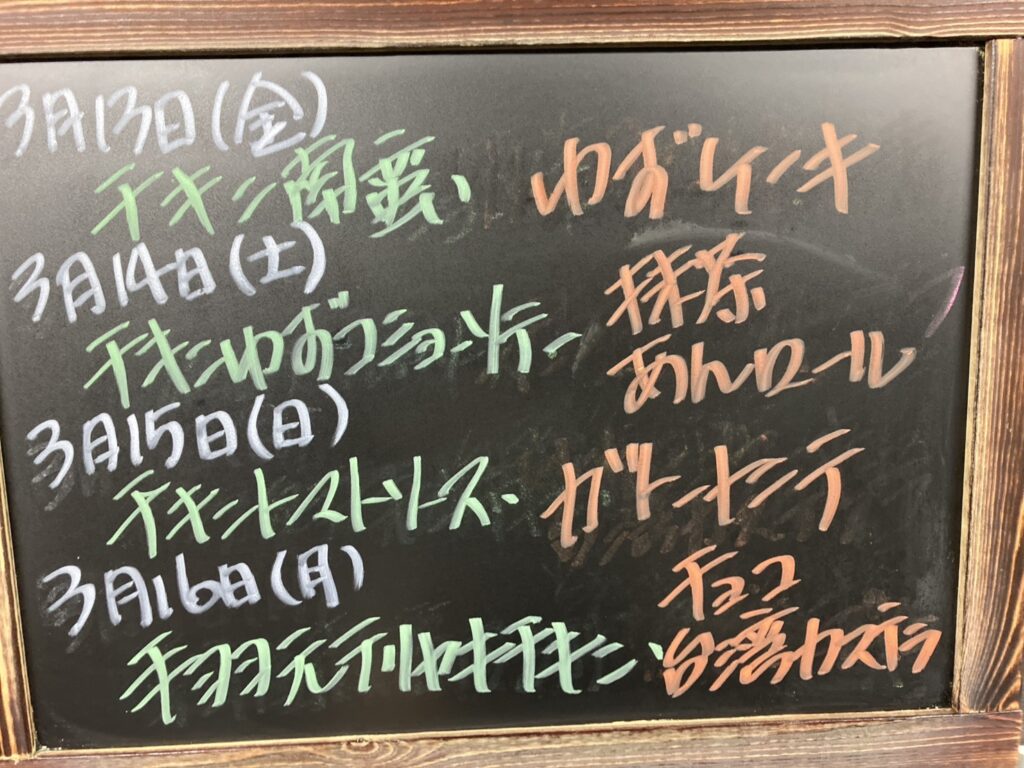 3月13日(金)
チキン南蛮、 ゆずケーキ
3月14日(土)
チキンゆずコショーソテー 抹茶
あんロール
3月15日(日)
チキントマトソース、 ガトーセンテ
3月16日(月)
チョコ
照り焼チキン、 台湾カステラ